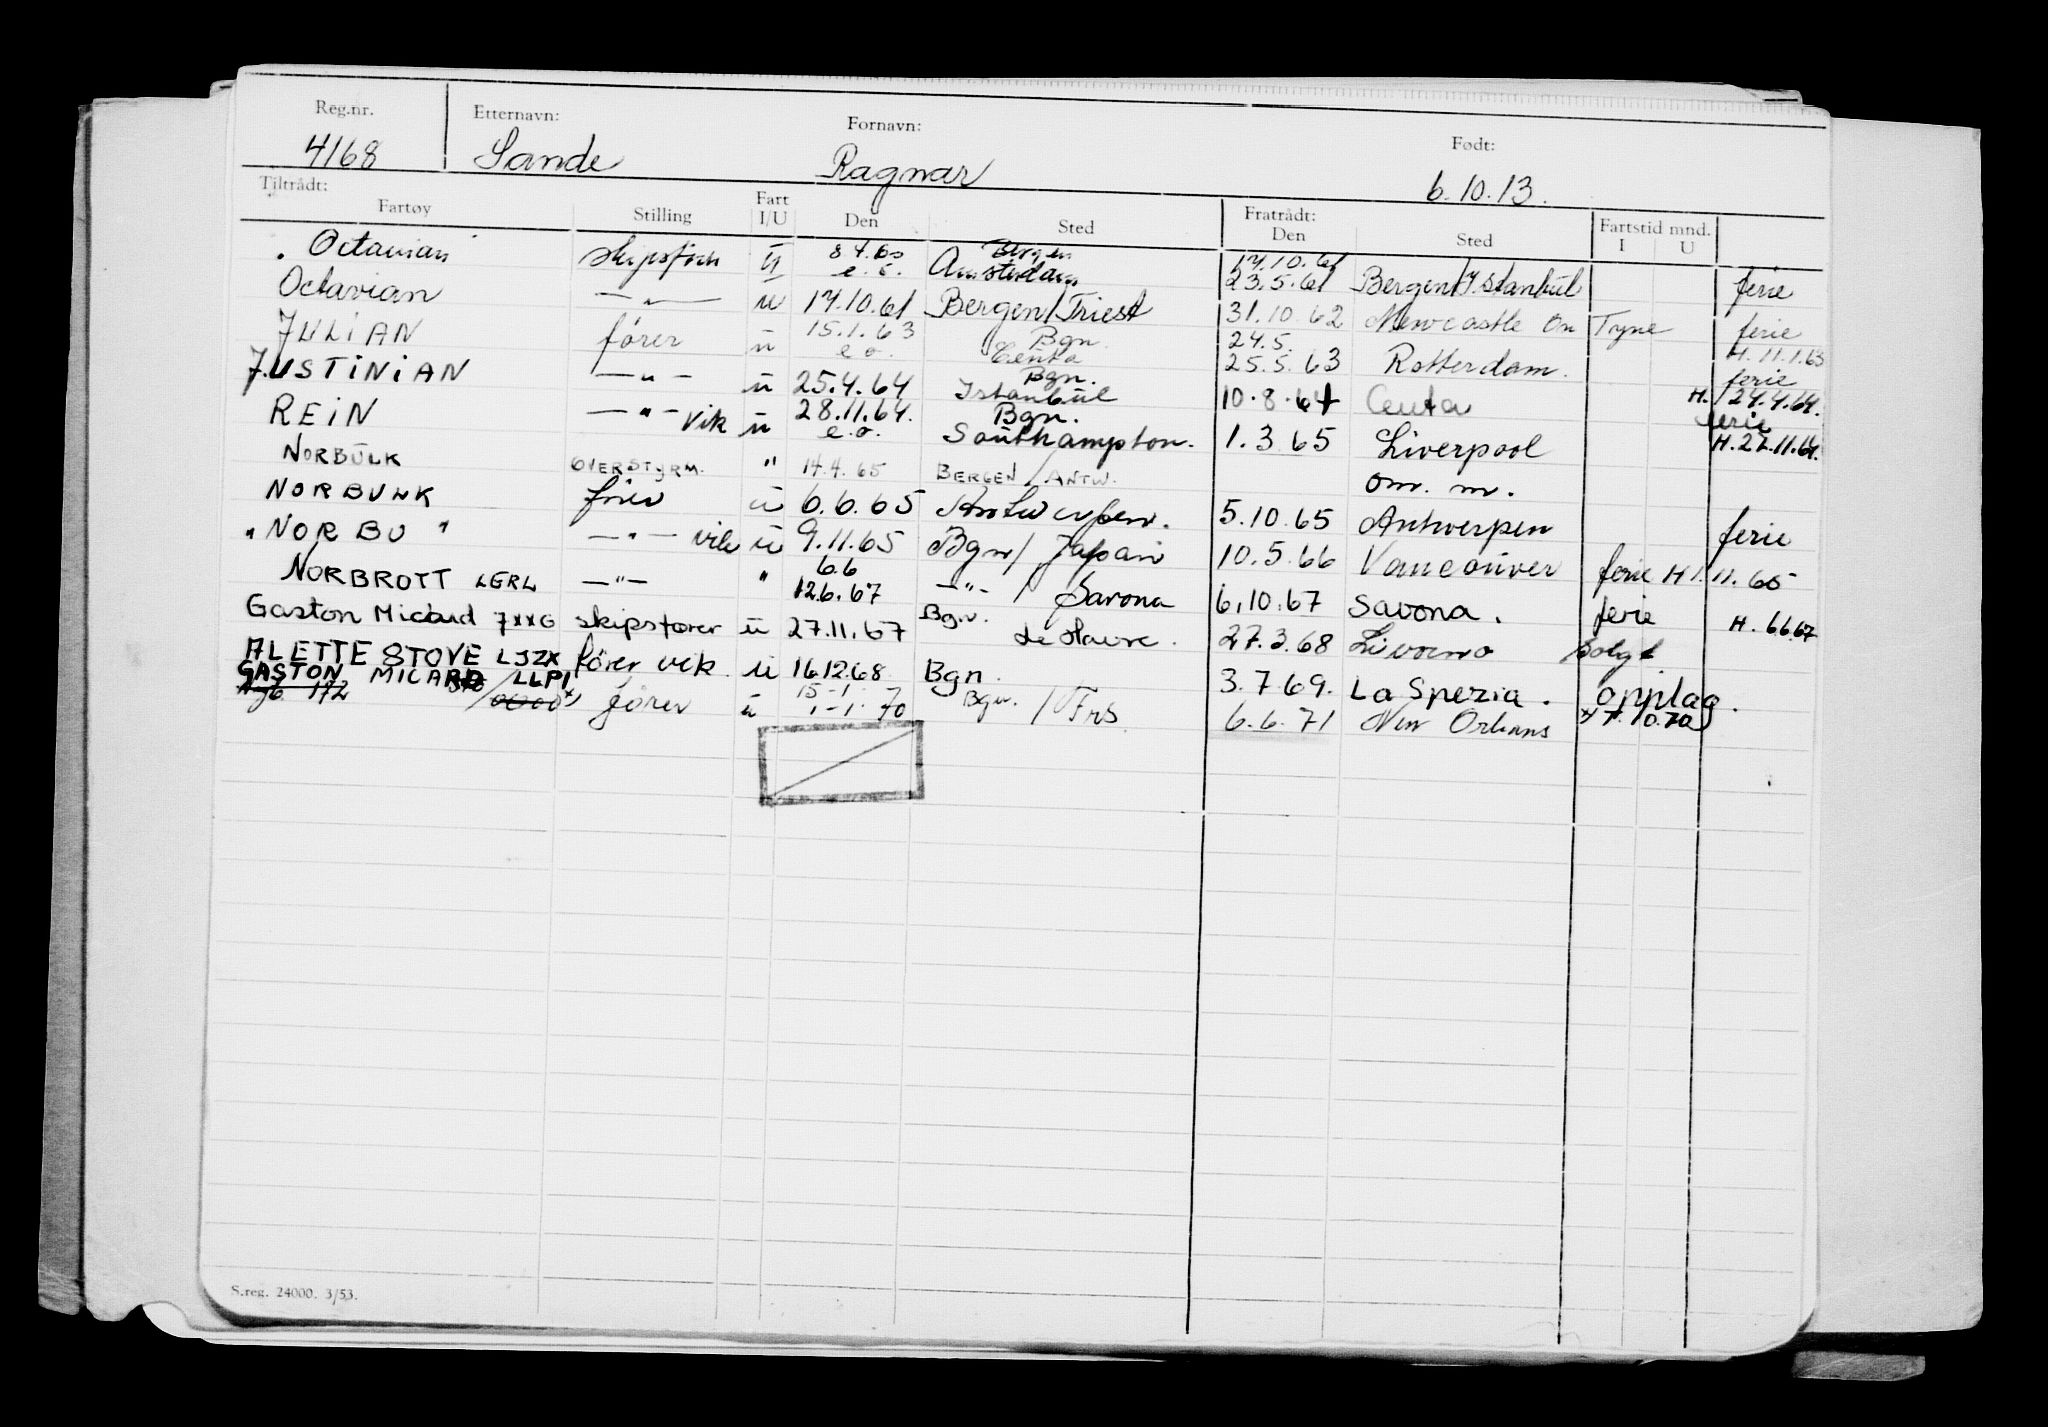 Reg.nr. Etternavn: Fornavn: Født:
4168 Sande Ragnar 6.10.13.
Tiltrådt: Fratrådt:
Fartøy Stilling Fart I/U Den Sted Den Sted Fartstid mnd. I U
Octavian skipsfører ü 8.4.60 Bergen 17.10.61
e.o. Amsterdam 23.5.61 Bergen/Istanbul ferie
Octavian —"— ü 17.10.61 Bergen/Triest 31.10.62 Newcastle on Tyne ferie
JULIAN fører ü 15.1.63 Bgn. 24.5. H. 11.1.63
e.o. Ceuta 25.5.63 Rotterdam. ferie
JUSTINIAN —"— ü 25.4.64 Bgn. Istanbul 10.8.64 Ceuta H. 24.4.64.
REIN —"— vik ü 28.11.64. Bgn. ferie
e.o. Southampton. 1.3.65 Liverpool H. 27.11.64.
NORBULK OVERSTYRM. " 14.4.65 BERGEN / ANTW. om. m.
NORBULK fører ü 6.6.65 Antwerpen. 5.10.65 Antwerpen ferie
" NORBU " —"— vik ü 9.11.65 Bgn/ Japan 10.5.66 Vancouver ferie H 1.11.65
NORBROTT LERL —"— " 6.6 12.6.67 —"— / Savona 6.10.67 Savona. ferie H. 6.6.67
Gaston Micard 7XXG skipsfører ü 27.11.67 Bgn. Le Havre. 27.3.68 Livorno Solgt
ALETTE STOVE LJZX fører vik ü 16.12.68 Bgn. 3.7.69. La Spezia. opplag.
GASTON MICARD / LLPI 15-1-
172 fører ü 1-1-70 Bgn. / Frs 6.6.71 New Orleans x) 7.10.70
S.reg. 24000. 3/53.